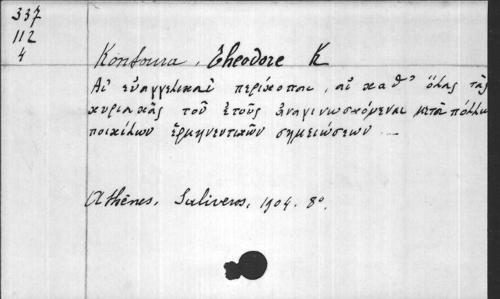 337
112
4
Kontoura, Théodore K
Αἱ εὐαγγελικαὶ περίκοπαι, αἱ καθ' ὅλας τὰς
κυριακὰς τοῦ ἔτους ἀναγινωσκόμεναι μετὰ πολλῶν
ποικίλων ἑρμηνευτικῶν σημειώσεων —
Athènes, Saliveros, 1904. 8º.